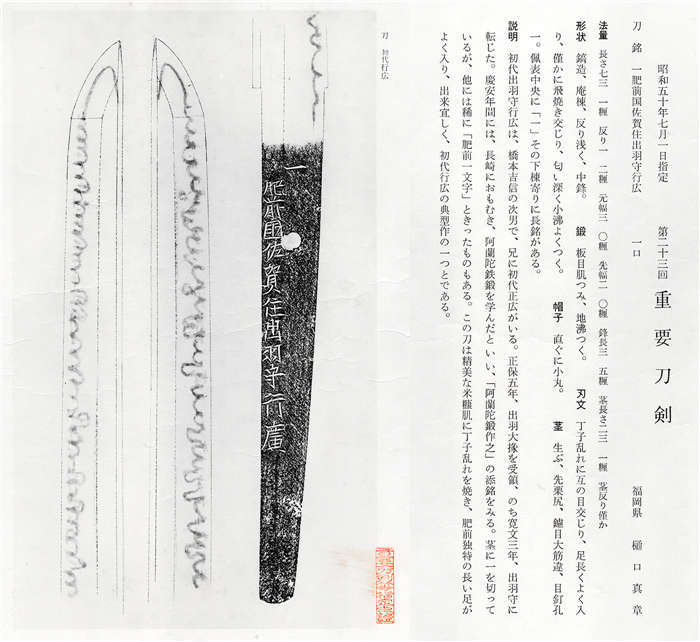 昭和五十年七月一日指定　第二十三回　重要刀剣
刀　銘　一肥前国佐賀住出羽守行広　一口　福岡県　樋口真章
法量　長さ七三 一糎　反り一 二糎　元幅三 〇糎　先幅二 〇糎　鋒長三 五糎　茎長さ二三 一糎　茎反り僅か
形状　鎬造、庵棟、反り浅く、中鋒。　鍛　板目肌つみ、地沸つく。　刃文　丁子乱れに互の目交じり、足長くよく入
り、僅かに飛焼き交じり、匂い深く小沸よくつく。　帽子　直ぐに小丸。　茎　生ぶ、先栗尻、鑢目大筋違、目釘孔
一。佩表中央に「一」その下棟寄りに長銘がある。
説明　初代出羽守行広は、橋本吉信の次男で、兄に初代正広がいる。正保五年、出羽大掾を受領、のち寛文三年、出羽守に
転じた。慶安年間には、長崎におもむき、阿蘭陀鉄鍛を学んだといい、「阿蘭陀鍛作之」の添銘をみる。茎に一を切って
いるが、他には稀に「肥前一文字」ときったものもある。この刀は精美な米糠肌に丁子乱れを焼き、肥前独特の長い足が
よく入り、出来宜しく、初代行広の典型作の一つとである。
刀　初代行広
一
肥前國佐賀住出羽守行廣